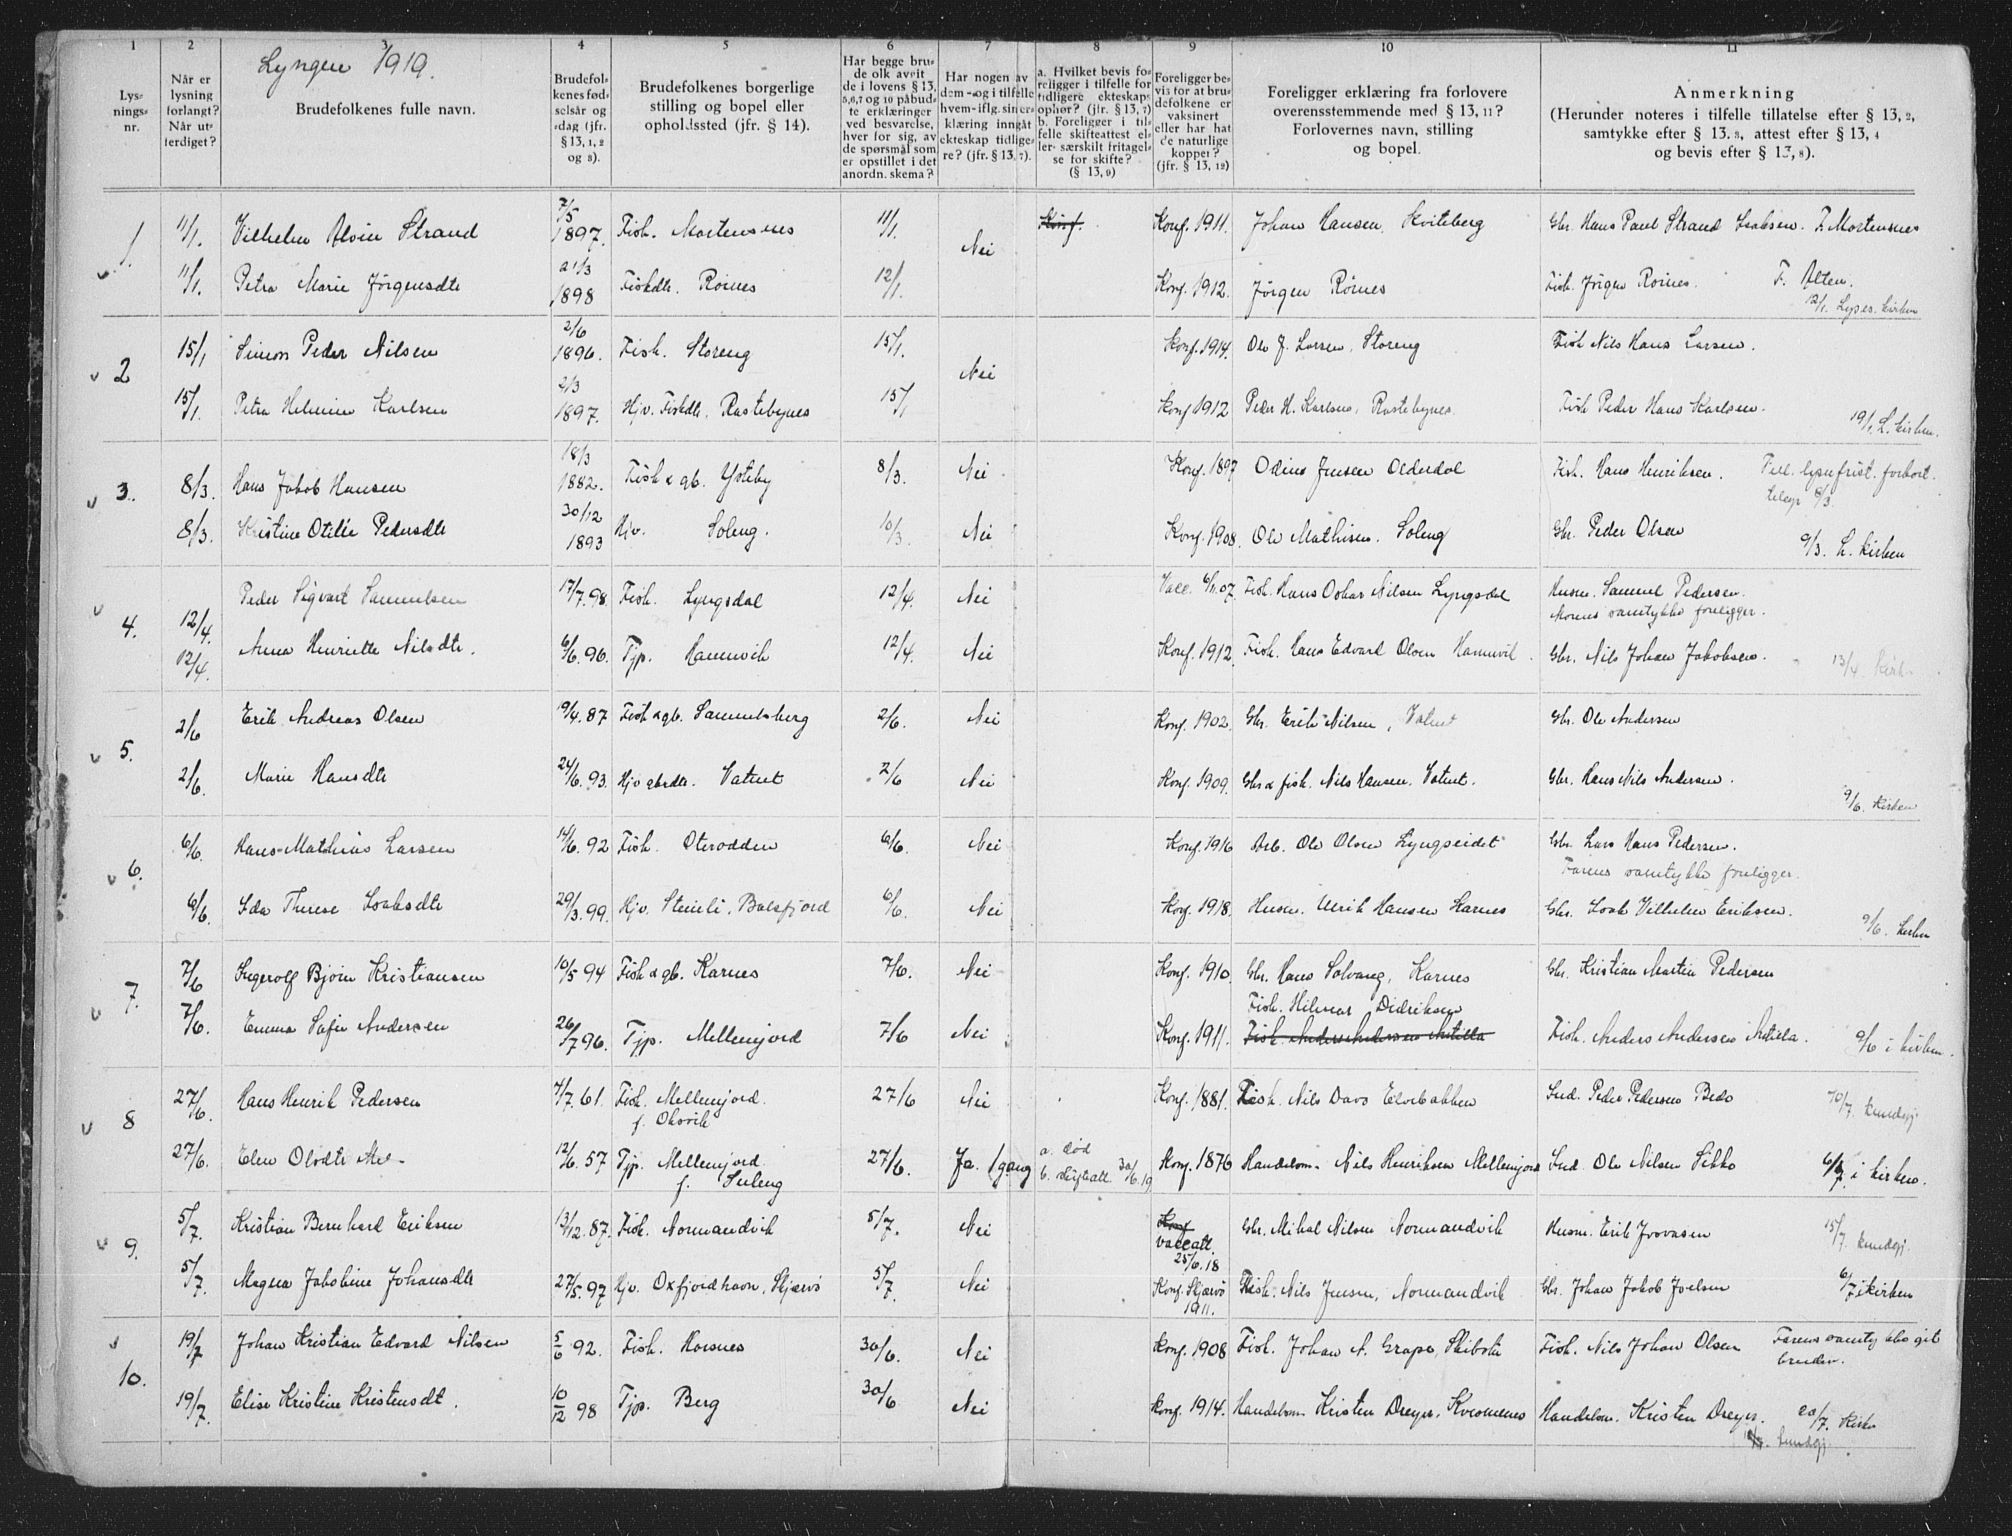 1 2 3 4 5 6 7 8 9 10 11
Lyngen 1919.
Lys-
nings-
nr.
Når er
lysning
forlangt?
Når ut-
ferdiget?
Brudefolkenes fulle navn.
Brudefol-
kenes fød-
selsår og
-dag (jfr.
§ 13, 1, 2
og 3).
Brudefolkenes borgerlige
stilling og bopel eller
opholdssted (jfr. § 14).
Har begge bru-
de olk avgit
de i lovens § 13,
5,6,7 og 10 påbud-
te erklæringer
ved besvarelse,
hver for sig, av
de spørsmål som
er opstillet i det
anordn. skema?
Har nogen av
dem -og i tilfelle
hvem-iflg. sin er-
klæring inngåt
ekteskap tidlige-
re? (jfr. § 13, 7).
a. Hvilket bevis fo-
religger i tilfelle for
tidligere ekteskaps
ophør? (jfr. § 13, 7)
b. Foreligger i til-
felle skifteattest el-
ler særskilt fritagel-
se for skifte?
(§ 13, 9)
Foreligger be-
vis for at bru-
defolkene er
vaksinert
eller har hat
de naturlige
kopper?
(jfr. § 13, 12)
Foreligger erklæring fra forlovere
overensstemmende med § 13, 11?
Forlovernes navn, stilling
og bopel.
Anmerkning
(Herunder noteres i tilfelle tillatelse efter § 13, 2,
samtykke efter § 13, 3, attest efter § 13, 4
og bevis efter § 13, 8).
1. 11/1. Vilhelm Alvin Strand 7/5 1897. Fisk. Mortensnes 11/1. Nei Konf. Konf. 1911. Johan Hansen, Kviteberg Gbr. Hans Paul Strand Isaksen. F. Mortensnes
11/1. Petra Marie Jørgensdtr 21/3 1898 Fiskdtr. Rornes 12/1. Konf. 1912. Jørgen Rornes Fisk. Jørgen Rornes. F. Alten.
12/1. Lyses. kirken
2 15/1 Simon Peder Nilsen 2/6 1896. Fisk. Storeng 15/1. Nei Konf. 1914. Ole J. Larsen, Storeng Fisk Nils Hans Larsen.
15/1. Petra Helmine Karlsen 2/3 1897. Hjv. Fiskdtr. Rastebynes 15/1 Konf 1912 Peder H. Karlsen, Rastebynes. Fisk Peder Hans Karlsen.
19/1. L. kirken.
3. 8/3. Hans Jakob Hansen 18/3 1882. Fisk & gb. Ysteby 8/3. Nei Konf. 1897 Odins Jensen Olderdal Fisk. Hans Henriksen. lysn frist. forkort.
telegr 8/3.
8/3. Kristine Otilie Pedersdtr 30/12 1893 Hjv. Soleng. 10/3. Nei Konf. 1908. Ole Mathisen. Soleng Gbr. Peder Olsen 9/3. L. kirken
4. 12/4. Peder Sigvart Samuelsen 17/7.98. Fisk. Lyngsdal 12/4. Nei Vacc. 6/11.07. Fisk. Hans Oskar Nilsen Lyngsdal Husm. Samuel Pedersen.
Morens samtykke foreligger.
12/4. Anna Henriette Nilsdtr. 6/6.96. Tjp. Hamnvik 12/4. Nei Konf. 1912. Fisk. Hans Edvard Olsen Hamnvik. Gbr. Nils Johan Jakobsen. 13/4. Kirk-
5. 2/6 Erik Andreas Olsen 19/4.87 Fisk & gb. Samuelsberg 2/6. Nei Konf. 1902. Gbr. Erik Nilsen, Vatnet Gbr. Ole Andersen
2/6. Marie Hansdtr 24/6.93. Hjv gbrdtr. Vatnet 2/6 Nei Konf. 1909. Gbr & fisk. Nils Hansen. Vatnet. Gbr. Hans Nils Andersen.
9/6. kirken
6. 6/6. Hans Mathias Larsen 14/6. 92 Fisk. Oterodden 6/6. Nei Konf. 1916 Arb. Ole Olsen Lyngseidet Gbr. Lars Hans Pedersen.
Farens samtykke foreligger.
6/6 Ida Therese Isaksdtr 29/3.99. Hjv. Steinli. Balsfjord 6/6. Nei Konf. 1918. Husm. Ulrik Hansen Karnes Gbr. Isak Vilhelm Eriksen. 9/6. kirken
7. 7/6 Ingerolf Bjørn Kristiansen 10/5 94 Fisk & gb. Karnes 7/6. Nei Konf. 1910. Gbr. Hans Solvang, Karnes Gbr. Kristian Martin Pedersen
Fisk. Hilmar Didriksen
7/6. Emma Sofie Andersen 26/7 96. Tjp. Mellemjord 7/6 Nei Konf. 1911. Fisk. Anders Andersen Antilla Fisk. Anders Andersen Antilla. 9/6 i kirken.
8 27/6. Hans Henrik Pedersen 7/7.61. Fisk. Mellemjord. 27/6 Nei Konf. 1881. Fisk. Nils Davs Elvebakken Ind. Peder Pedersen 10/7 kundgj
f. Okovik
27/6. Elen Olsdtr 12/6. 57 Tjp. Mellemjord. 27/6. Ja. 1 gang a. død Konf. 1876 Handelsm. Nils Henriksen Mellemjord Ind. Ole Nilsen Sikko 6/7. i kirken.
f. b. skifteatt. 30/6.19
9. 5/7. Kristian Bernhard Eriksen 13/12.87. Fisk. Normandvik 5/7. Nei Konf Gbr. Mikal Nilsen Normandvik Husm. Erik 15/7 kundgj.
vaccatt.
25/6.18
5/7. Magna Jakobine Johansdtr 27/5.97 Hjv. Oxfjordhavn, Skjærvø 5/7. Nei Konf. Skjervø 1911. Fisk. Nils Jensen, Normandvik Gbr. Johan Jakob Joelsen 6/7 i kirken
10. 19/7 Johan Kristian Edvard Nilsen 5/6 92. Fisk. Horsnes 30/6. Nei Konf. 1908 Fisk. Johan A. Grape, Skibotn Fisk. Nils Johan Olsen Farens samtykke git
bruden.
19/7. Elise Kristine Kristensdt. 10/12 98 Tjp. Berg 30/6 Nei Konf. 1914. Handelsm Kristen Dreyer, Kvesmenes Handelsm. Kristen Dreyer. 20/7. Kirk
kundgj.